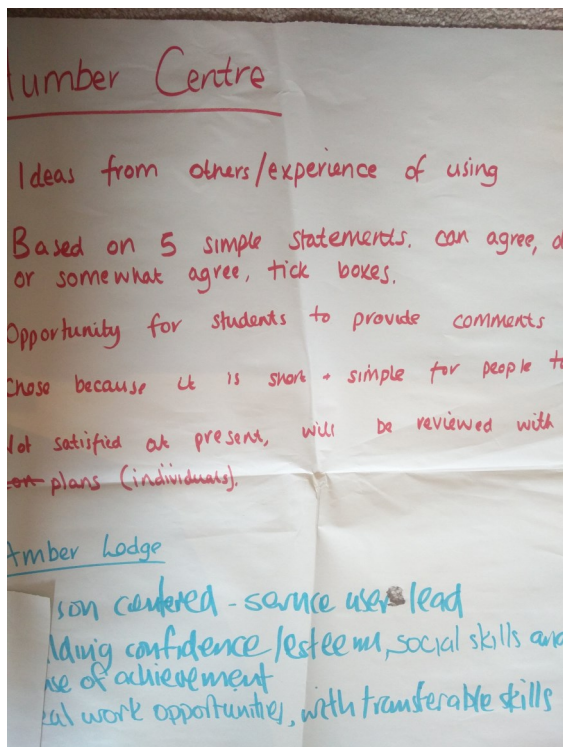 umber Centre
Ideas from others/experience of using
Based on 5 simple statements. can agree, d
or somewhat agree, tick boxes.
Opportunity for students to provide comments
Chose because it is short + simple for people to
Not satisfied at present, will be reviewed with
plans (individuals).
Amber Lodge
son centered - service user lead
lding confidence/esteem, social skills and
se of achievement
eal work opportunities, with transferable skills